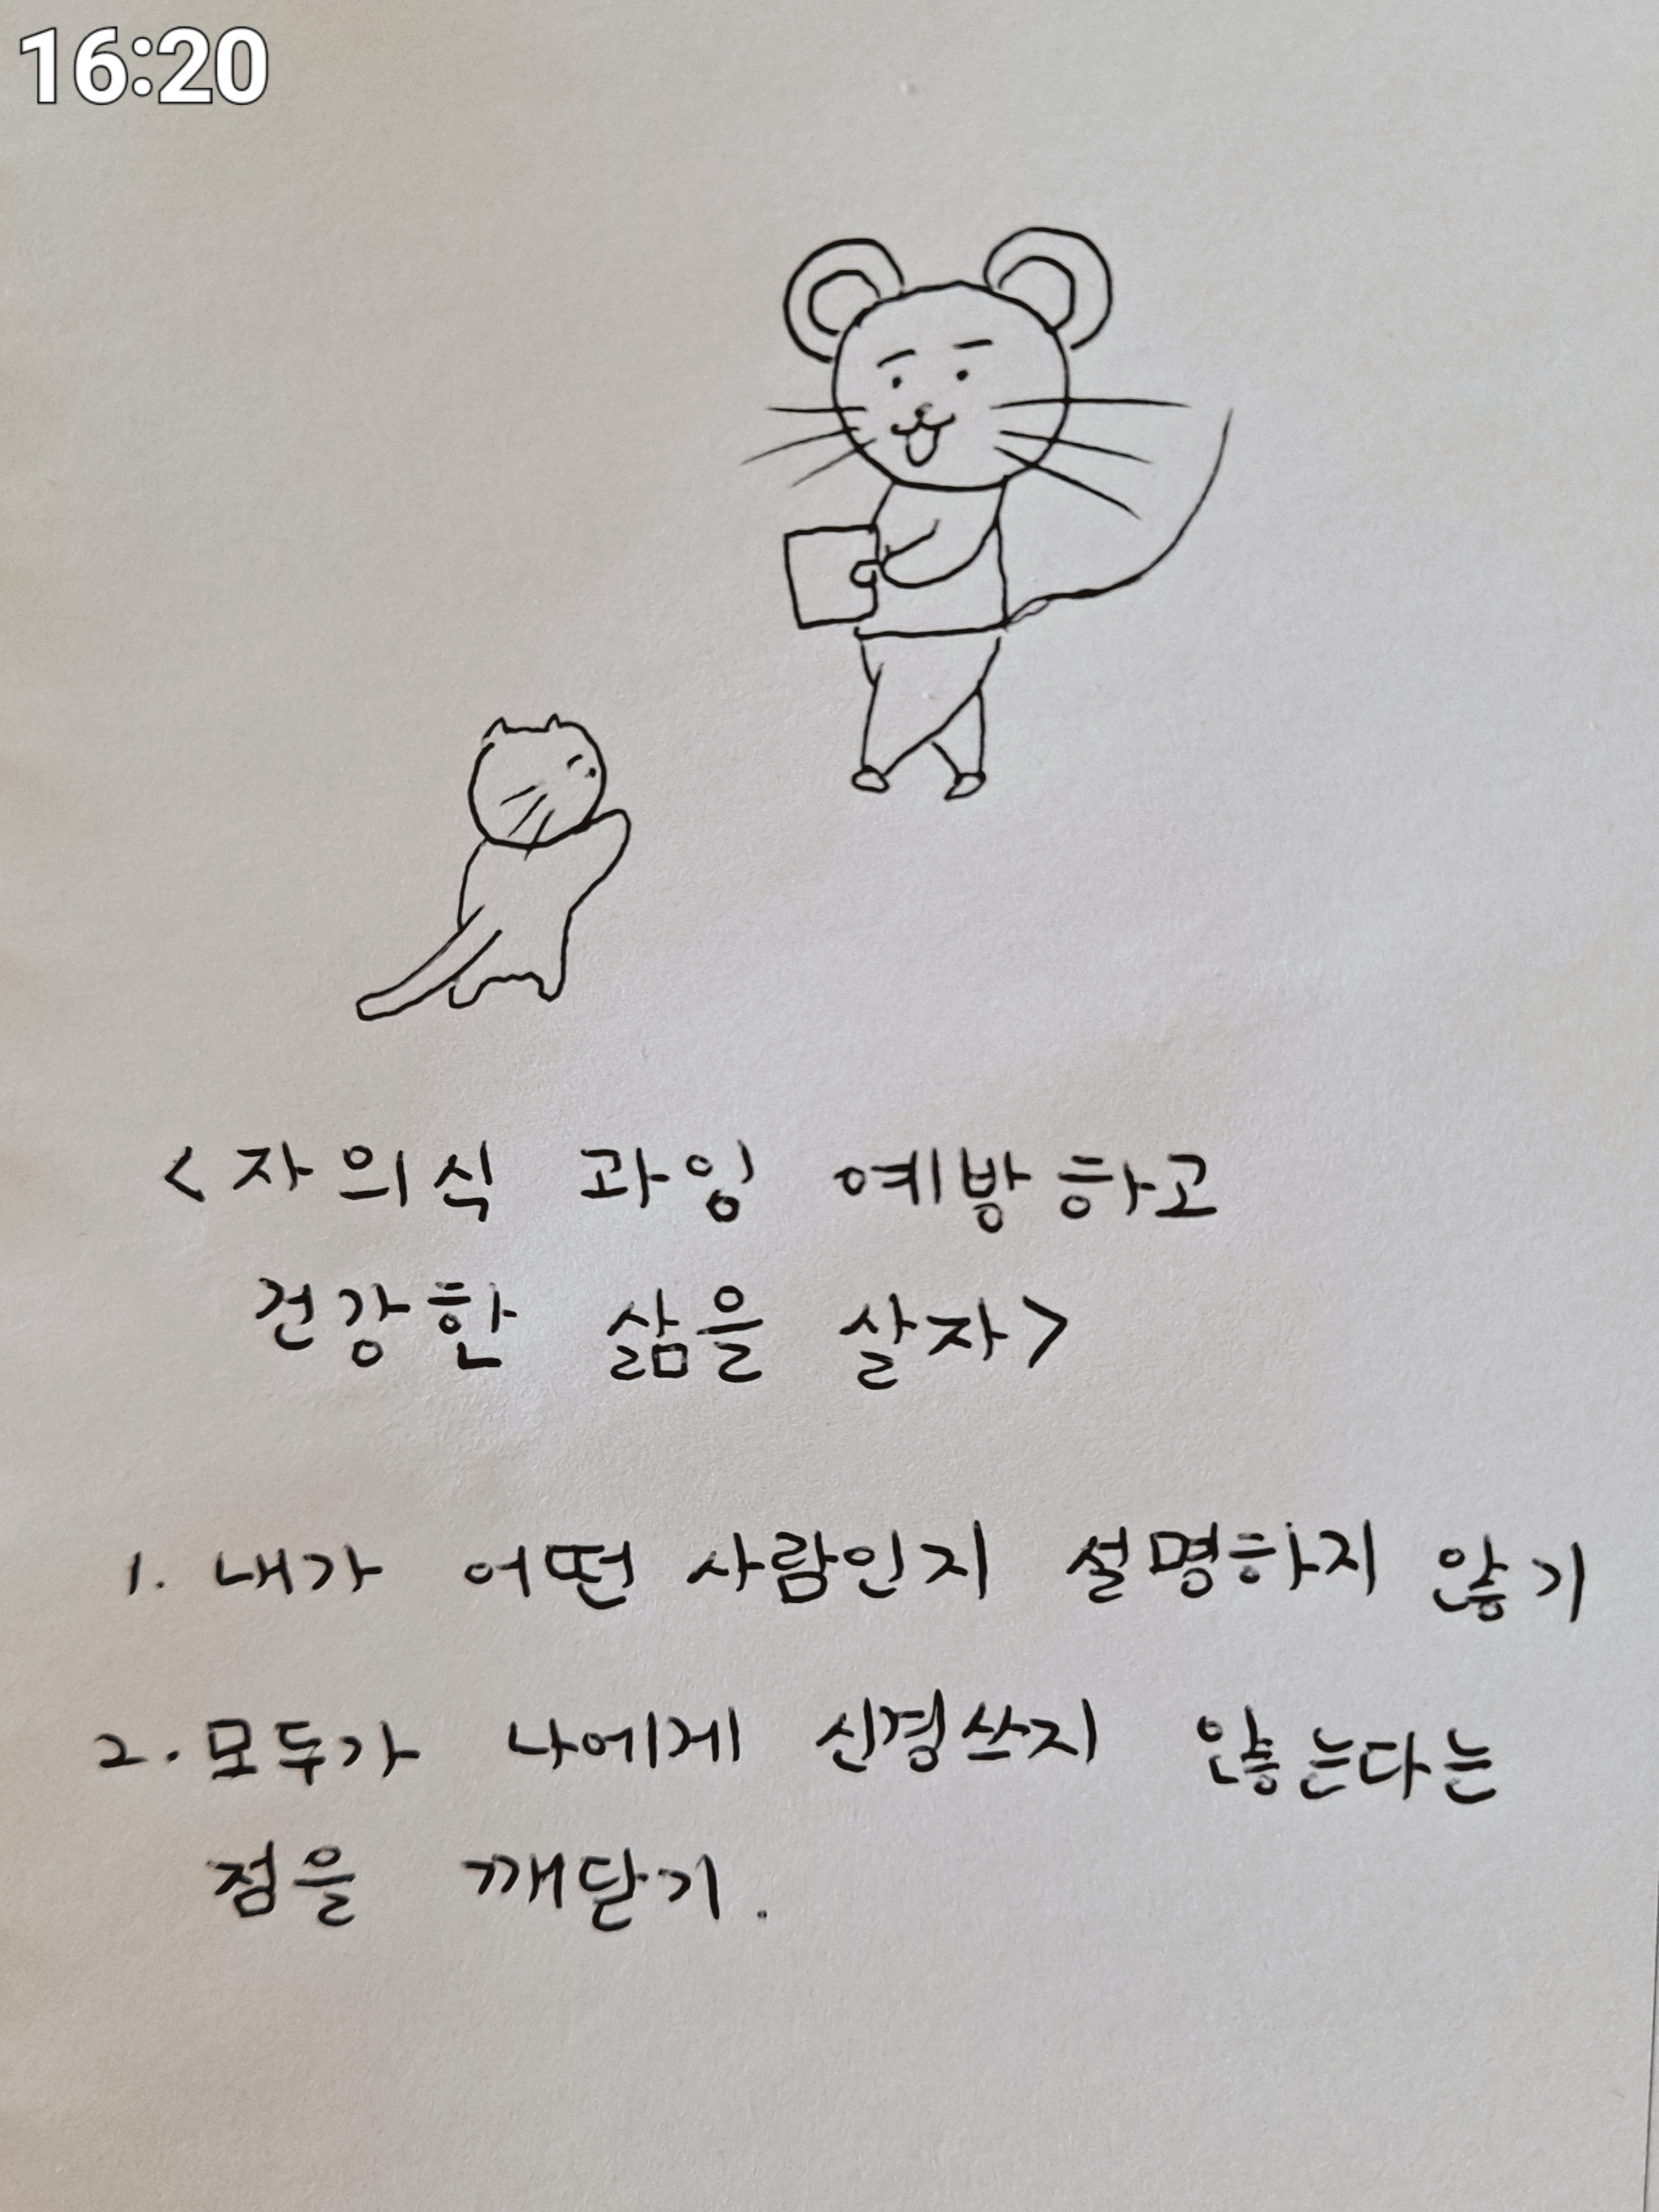 16:20
<자의식 과잉 예방하고
건강한 삶을 살자>
1. 내가 어떤 사람인지 설명하지 않기
2. 모두가 나에게 신경쓰지 않는다는
점을 깨닫기.